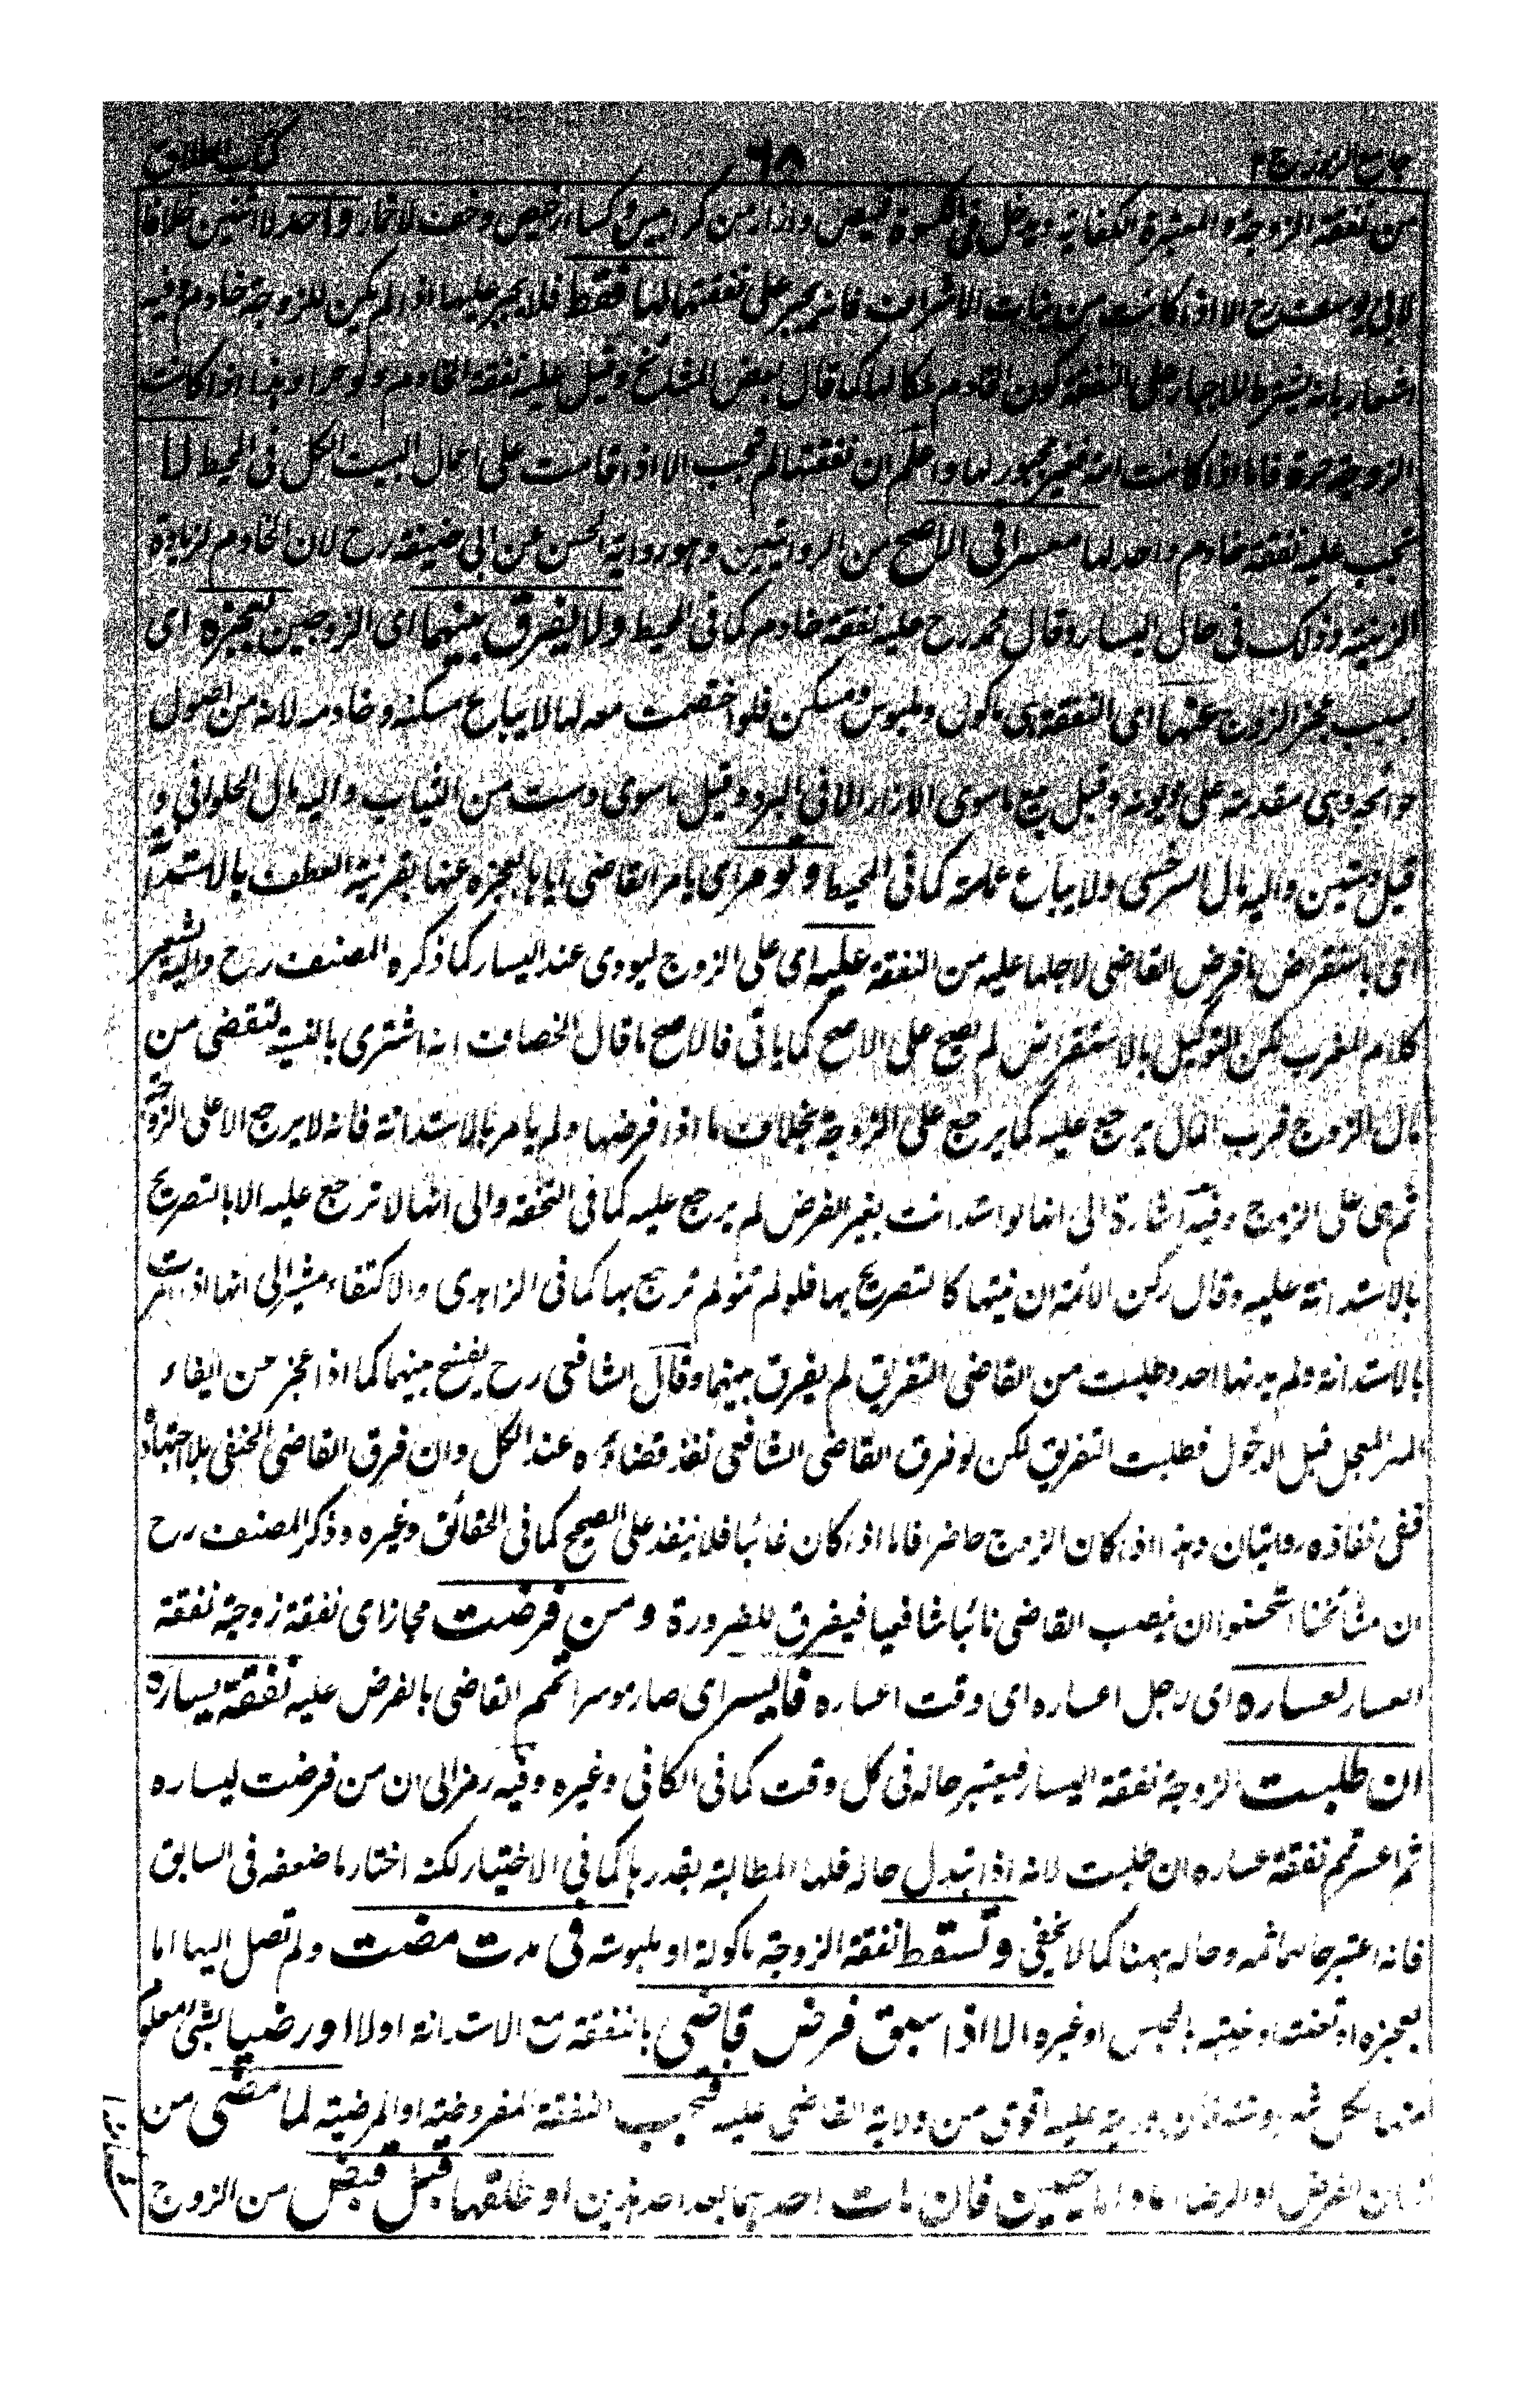 جامع الرموز ج ٢ ٦٥ كتاب الطلاق
من نفقة الزوجة والمعتبرة الكفاية ويدخل في الكسوة قميص وازار من كرابيس وكساء رخيص وخف لا خمار واحد لا اثنين خلافا
لابي يوسف رح الا اذا كانت من بنات الاشراف فانه يجبر على نفقتهما لها فقط فلا يجبر عليها اذا لم يكن للزوجة خادم وفيه
اشعار بانه يشترط للاجبار على النفقة كون الخادم ملكا لها كما قال بعض المشائخ وقيل عليه نفقة الخادم ولو حرا وهذا اذا كانت
الزوجة حرة فاما اذا كانت امة فغير مجبور لها واعلم ان نفقتها لم تجب الا اذا قامت على اعمال البيت الكل في المحيط لما
تجب عليه نفقة خادم واحد لها معسرا في الاصح من الروايتين وهو رواية الحسن عن ابي حنيفة رح لان الخادم لزيادة
الزينة وذلك في حال اليسار وقال محمد رح عليه نفقة خادم كما في المحيط ولا يفرق بينهما اي الزوجين بعجزه اي
بسبب عجز الزوج عنها اي النفقة وهي ماكول وملبوس ومسكن فلو اختصمت معه لها لا يباع مسكنه وخادمه لانه من اصول
حوائجه وهي مقدمة على ديونه وقيل يبيع ما سوى الازار الا في البرد وقيل ما سوى دست من الثياب واليه مال الحلواني و
قيل دستين واليه مال السرخسي ولا يباع عمامته كما في المحيط وتؤمر اي يامر القاضي اياها بعجزه عنها بقرينة العطف بالاستدانة
اي باستقراض ما فرض القاضي لاجلها عليه من النفقة عليه اي على الزوج ليودى عند اليسار كما ذكره المصنف رح واليه يشير
كلام المغرب لكن التوكيل بالاستقراض لم يصح على الاصح كما ياتي فالاصح ما قال الخصاف انه اشترى بالنسية لتقضى من
مال الزوج فرب المال يرجع عليه كما يرجع على الزوجة بخلاف ما اذا فرضها ولم يامر بالاستدانة فانه لا يرجع الا على الزوجة
ثم هي على الزوج وفيه اشارة الى انها لو استدانت بغير الفرض لم يرجع عليه كما في التحفة والى انها لا ترجع عليه الا بالتصريح
بالاستدانة عليه وقال ركن الائمة ان نيتها كالتصريح بها فلو لم تنو لم ترجع بها كما في الزاهدي والاكتفاء مشير الى انها اذا امرت
بالاستدانة ولم يدنها احد وطلبت من القاضي التفريق لم يفرق بينهما وقال الشافعي رح يفسخ بينهما كما اذا عجز عن ايفاء
المهر المعجل قبل الدخول فطلبت التفريق لكن لو فرق القاضي الشافعي نفذ قضاؤه عند الكل وان فرق القاضي الحنفي بلا اجتهاد
ففي نفاذه روايتان وهذا اذا كان الزوج حاضرا فاما اذا كان غائبا فلا ينفذ على الصحيح كما في الحقائق وغيره وذكر المصنف رح
ان مشائخنا استحسنوا ان ينصب القاضي نائبا شافعيا فيفرق للضرورة ومن فرضت مجازا اي نفقة زوجية نفقة
العسار لعساره اي لاجل اعساره اي وقت اعساره فايسر اي صار موسرا تمم القاضي بالفرض عليه نفقة يساره
ان طلبت الزوجة نفقة اليسار فيعتبر حاله في كل وقت كما في الكافي وغيره وفيه رمز الى ان من فرضت ليساره
ثم اعسر تمم نفقة عساره ان طلبت لانه اذا تبدل حاله فلها المطالبة بقدرها كما في الاختيار لكنه اختار ما ضعفه في السابق
فانه اعتبر حالهما ثمه وحاله ههنا كما لا يخفى وتسقط نفقة الزوجة ماكولة او ملبوسة في مدت مضت ولم تصل اليها اما
بعجزه او تعنته او غيبته بالحبس او غيره الا اذا سبق فرض قاضي بالنفقة مع الاستدانة اولا او رضيا بشئ معلوم
منها لكل شهر او سنة فان ولايته عليه اقوى من ولاية القاضي عليه فتجب النفقة المفروضية او المرضية لما مضى من
زمان الفرض او الرضاء ما داما حيين فان مات احدهما بعد احد هذين او طلقها قبل قبض من الزوج